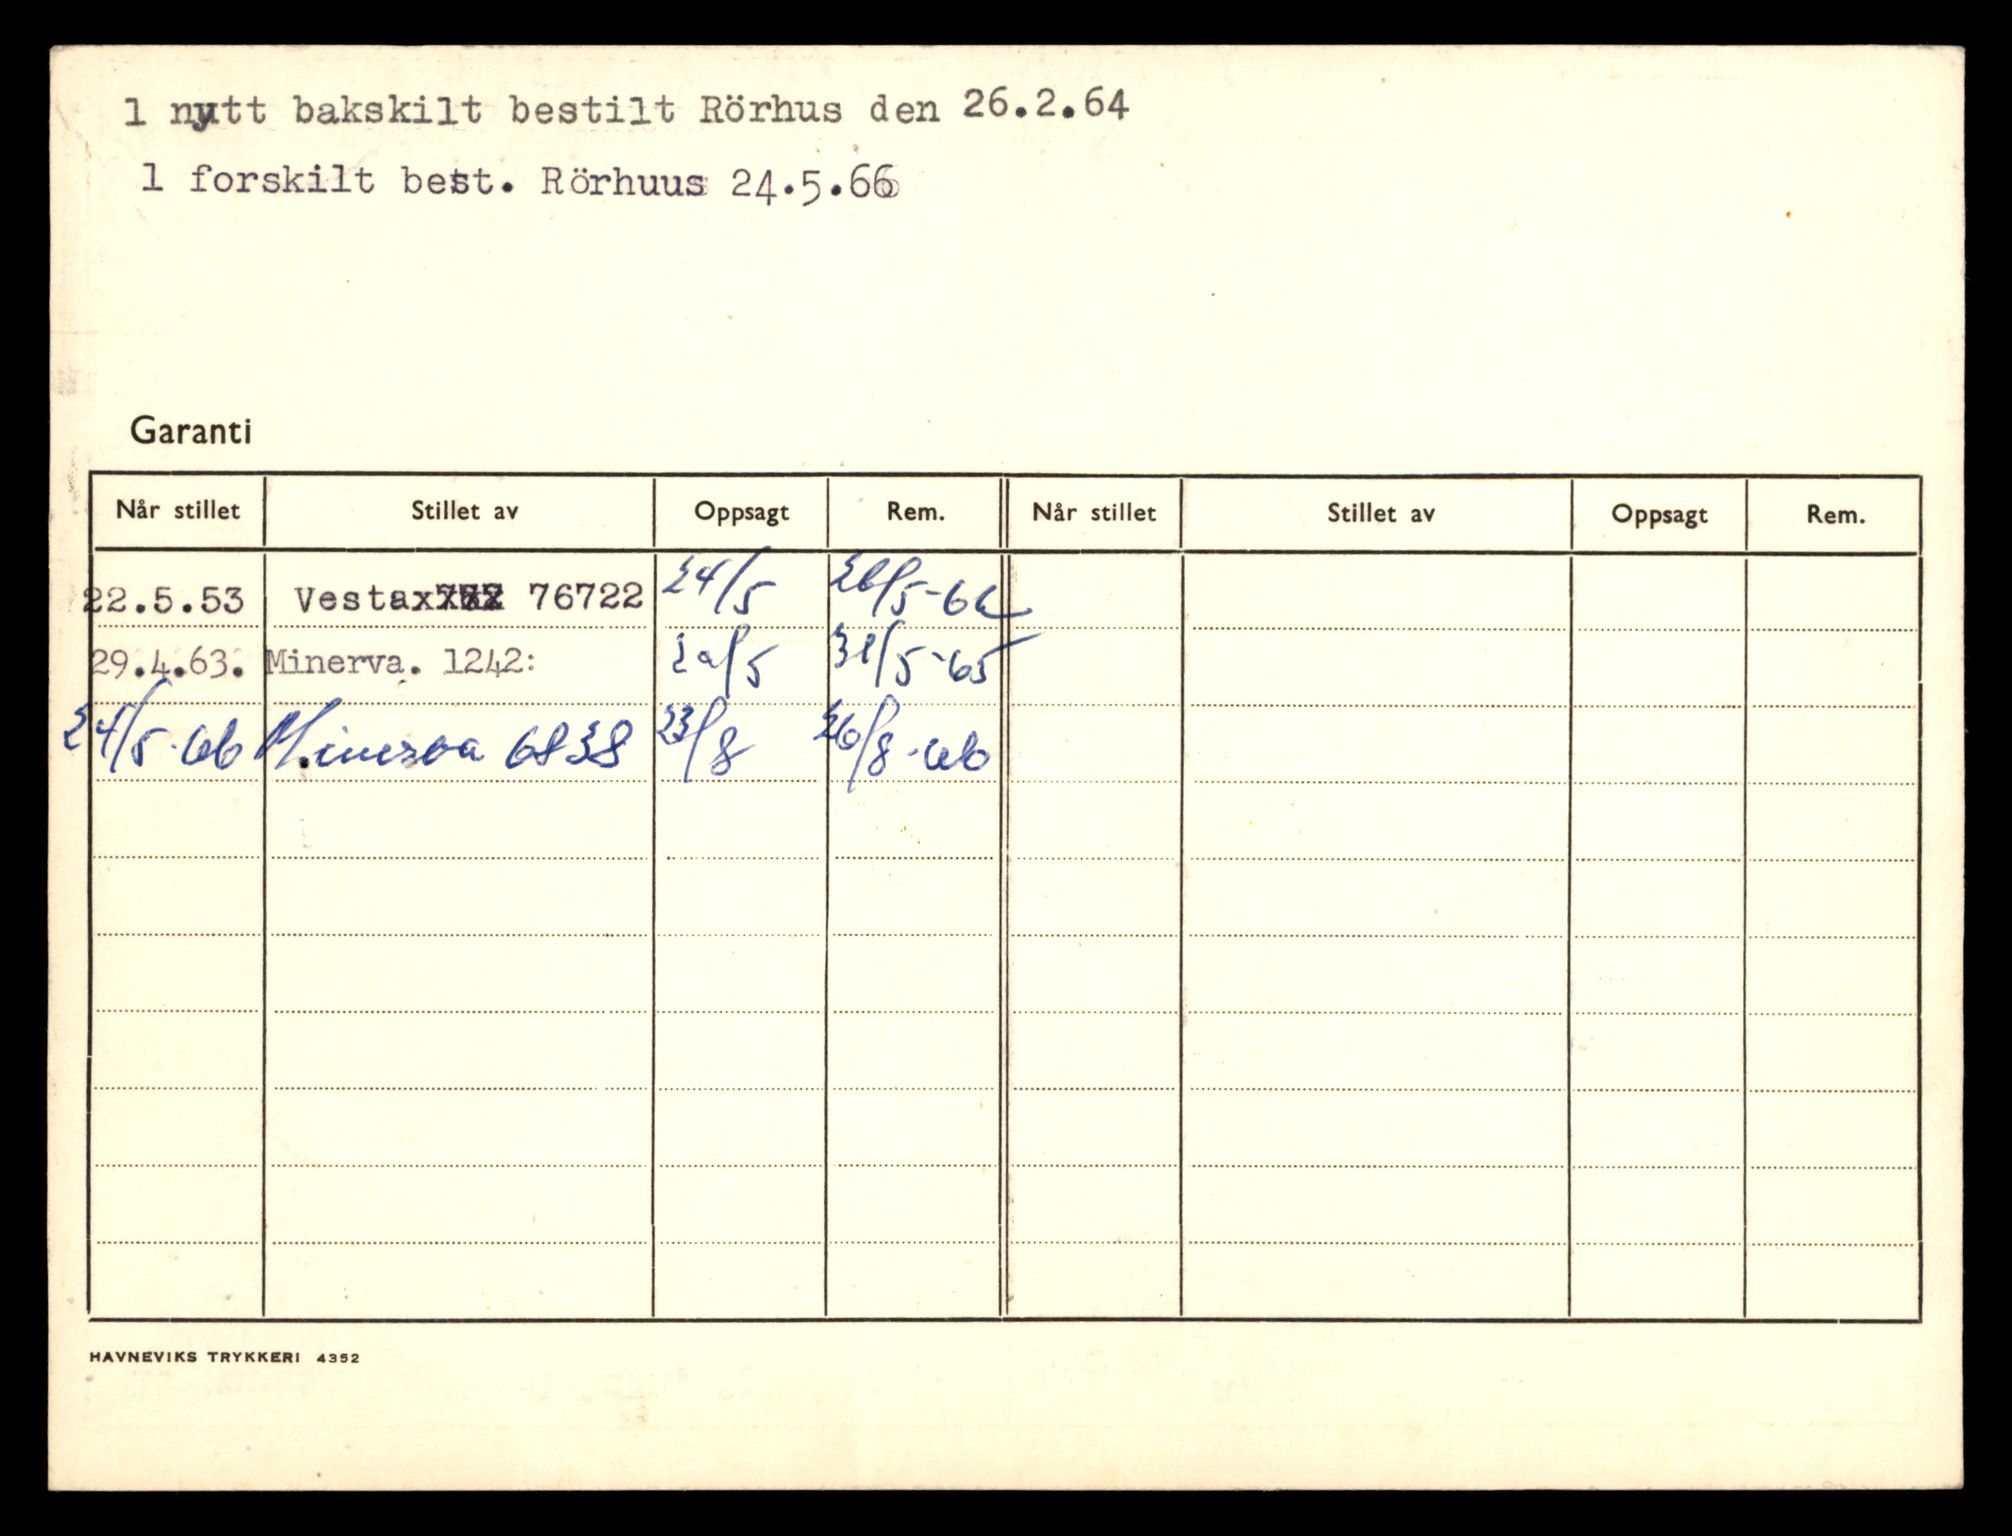 1 nytt bakskilt bestilt Rörhus den 26.2.64
1 forskilt best. Rörhuus 24.5.66
Garanti
Når stillet Stillet av Oppsagt Rem. Når stillet Stillet av Oppsagt Rem.
22.5.53 Vesta 76722 24/5 26/5-62
29.4.63. Minerva. 1242: 31/5-65
24/5-66 Minerva 6838 23/8 26/8-66
HAVNEVIKS TRYKKERI 4352